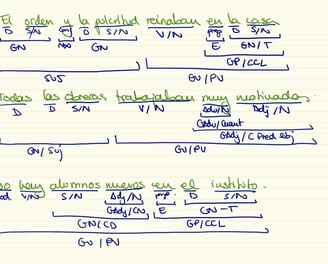 El orden y la pulcritud reinaban en la casa.
D S/N D S/N V/N D S/N
GN GN E GN/T
GP/CCL
SUJ GV/PV
Todas las obreras trabajaban muy motivadas.
D D S/N V/N Adv/N Adj/N
GAdv/Cuant
GAdj/C Pred Sbj
GN/Suj GV/PV
no hay alumnos nuevos en el instituto.
V/N S/N Adj/N prep. D S/N
GAdj/CN E GN-T
GN/CD GP/CCL
GV/PV